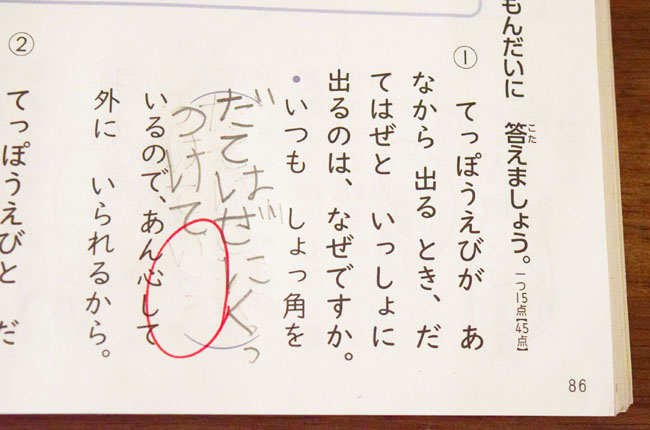 もんだいに 答えましょう。一つ15点【45点】
こた
① てっぽうえびが あ
なから 出る とき、だ
てはぜと いっしょに
出るのは、なぜですか。
・いつも しょっ角を
だてはぜにくっ
つけて
いるので、あん心して
外に いられるから。
② てっぽうえびと だ
86